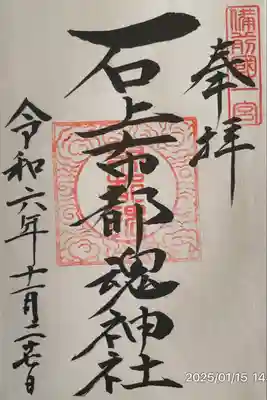 備前國一宮
奉拝
石上布都魂神社
令和六年
2025/01/15 14